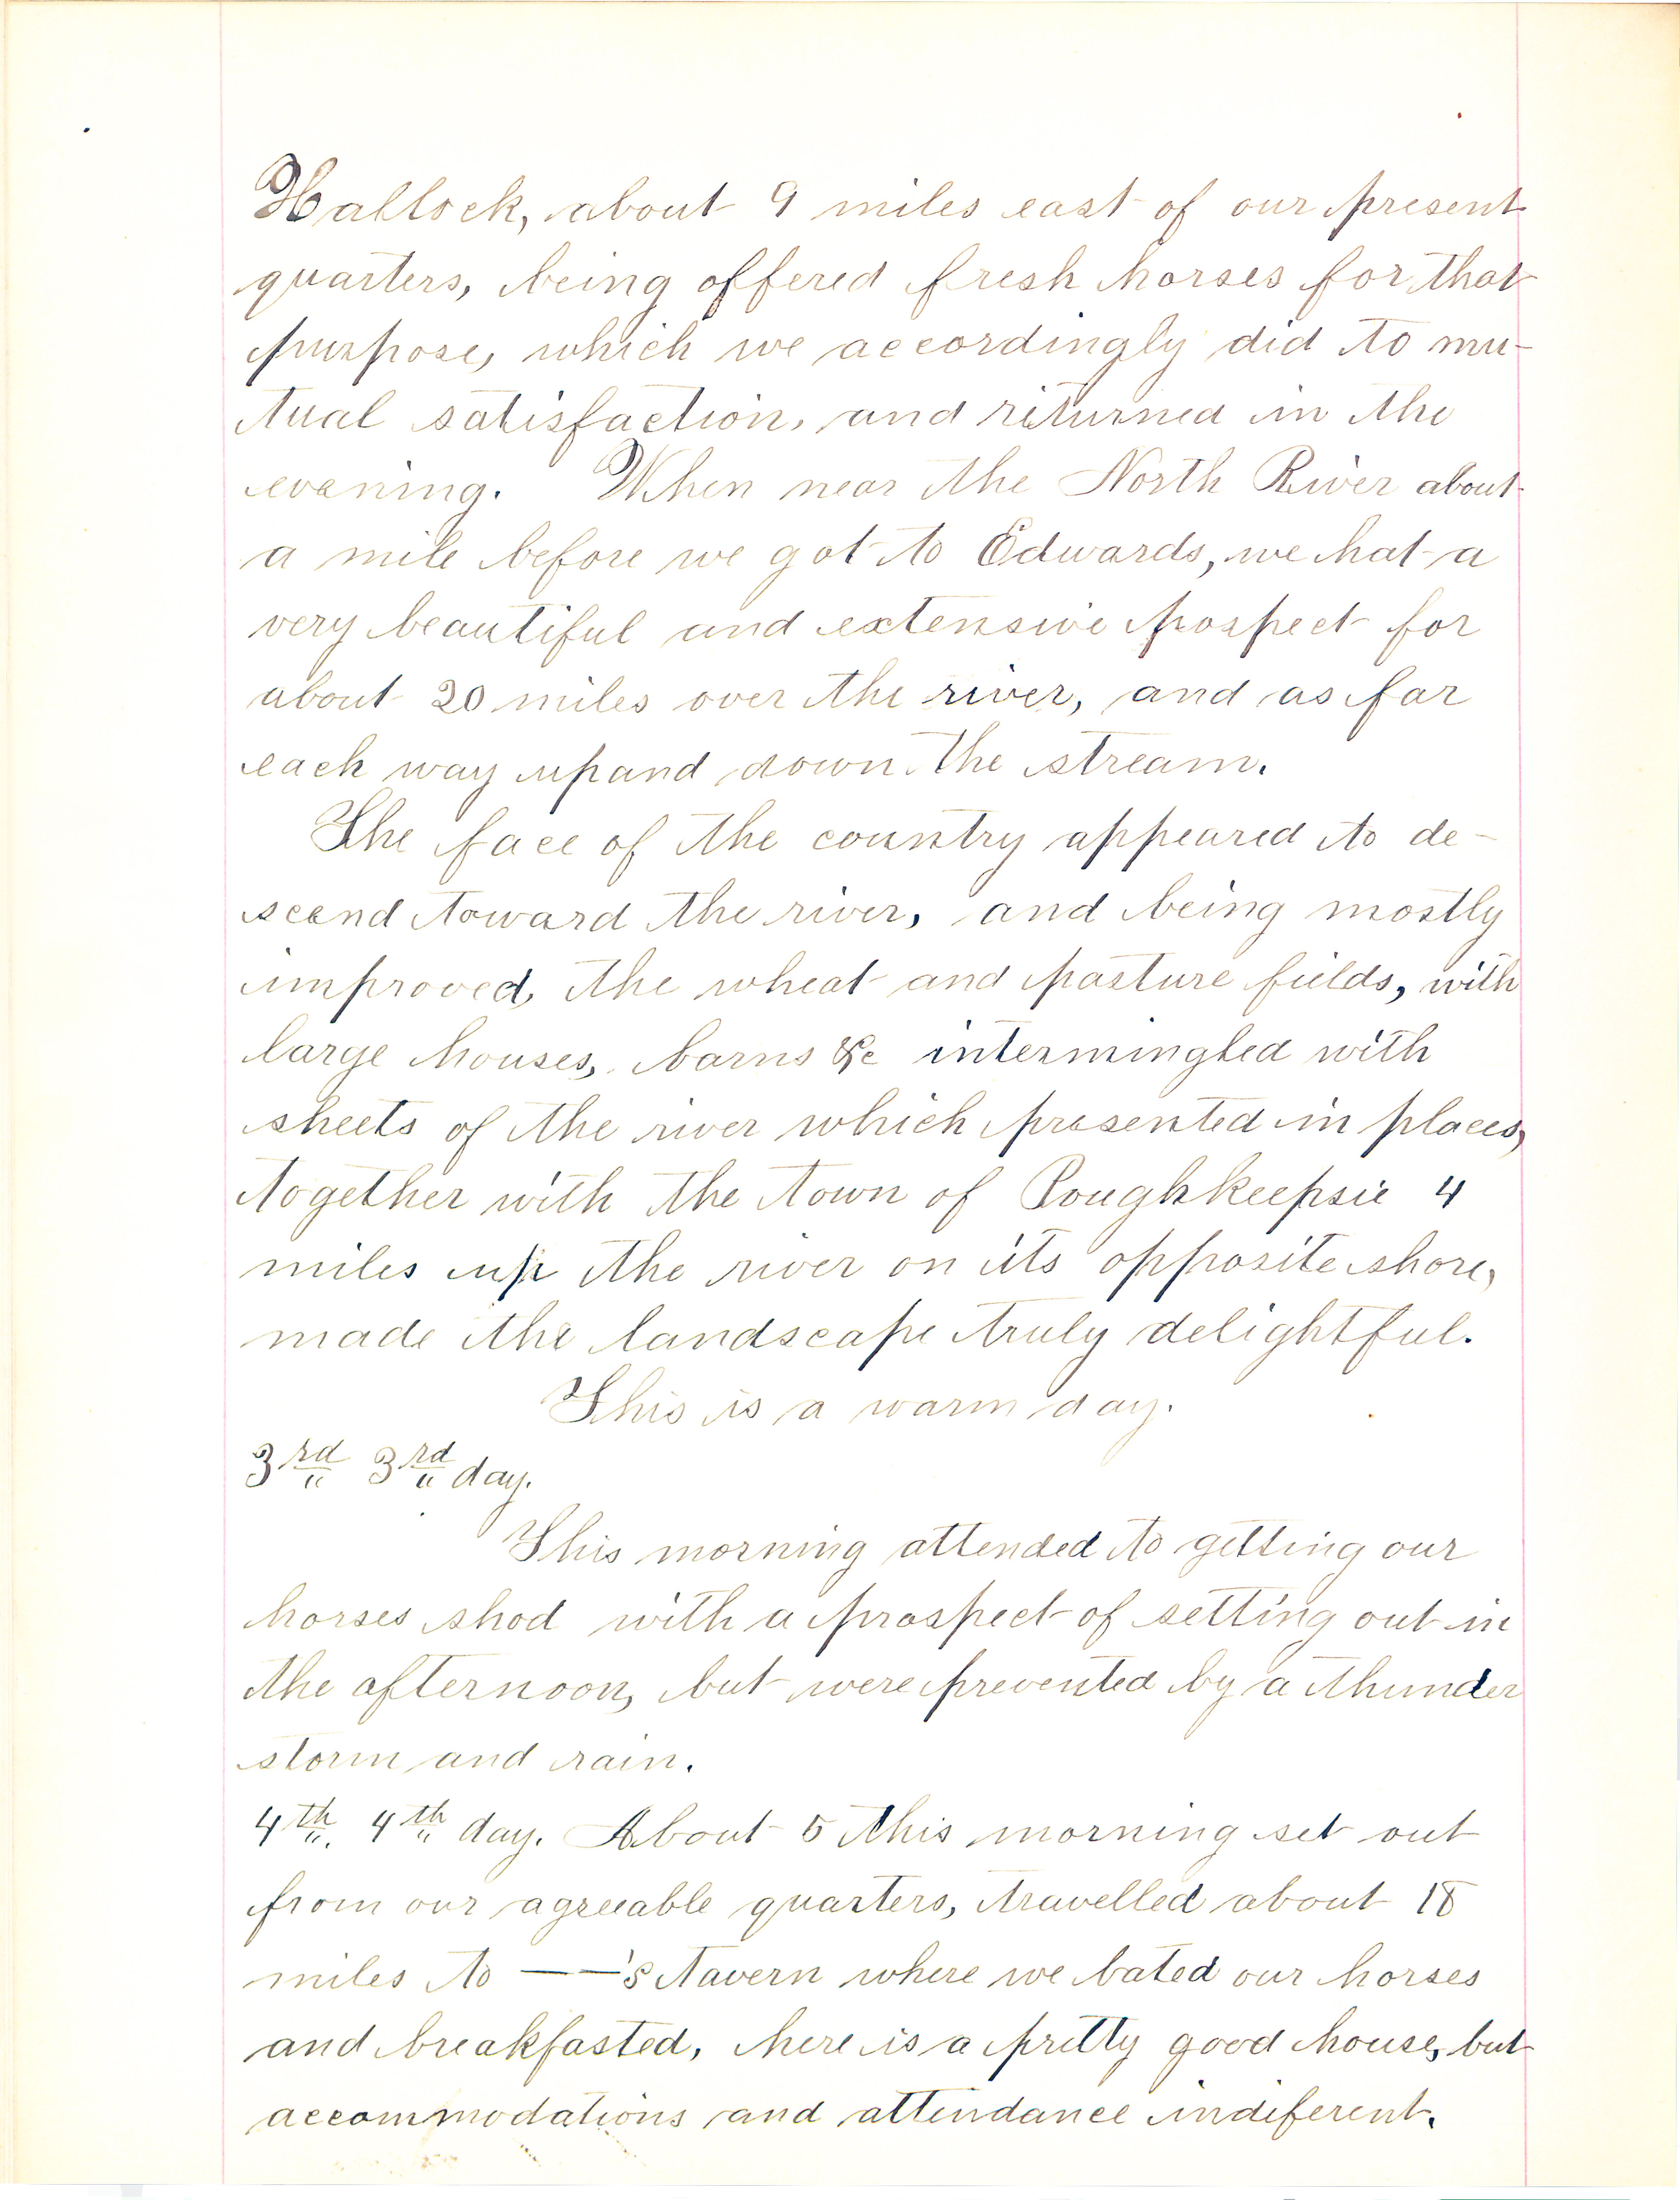 Hallock, about 9 miles east of our present
quarters, being offered fresh horses for that
purpose, which we accordingly did to mu-
tual satisfaction, and returned in the
evening. When near the North River about
a mile before we got to Edwards, we hat a
very beautiful and extensive prospect for
about 20 miles over the river, and as far
each way up and down the stream.
The face of the country appeared to de-
scend toward the river, and being mostly
improved, the wheat and pasture fields, with
large houses, barns &c intermingled with
sheets of the river which presented in places,
together with the town of Poughkeepsie 4
miles up the river on its opposite shore,
made the landscape truly delightful.
This is a warm day.
3rd 3rd day.
This morning attended to getting our
horses shod with a prospect of setting out in
the afternoon, but were prevented by a thunder
storm and rain.
4th. 4th day. About 5 this morning set out
from our agreeable quarters, travelled about 18
miles to ——'s Tavern where we bated our horses
and breakfasted, here is a pritty good house, but
accommodations and attendance indiferent.